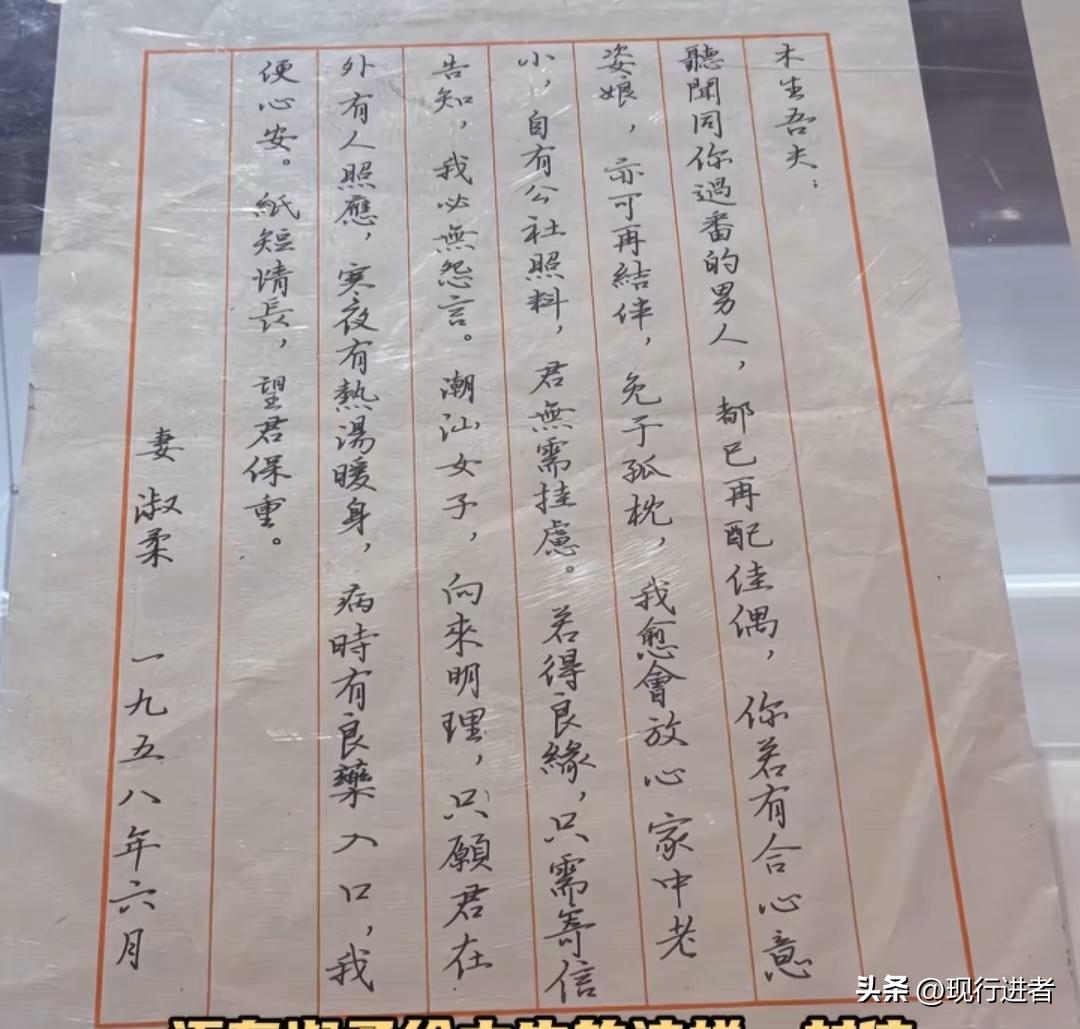 木生吾夫：
聽聞同你過番的男人，都已再配佳偶，你若有合心意
姿娘，亦可再結伴，免于孤枕，我愈會放心家中老
小，自有公社照料，君無需挂慮。若得良緣，只需寄信
告知，我必無怨言。潮汕女子，向來明理，只願君在
外有人照應，寒夜有熱湯暖身，病時有良藥入口，我
便心安。紙短情長，望君保重。
妻淑柔 一九五八年六月
头条 @现行进者